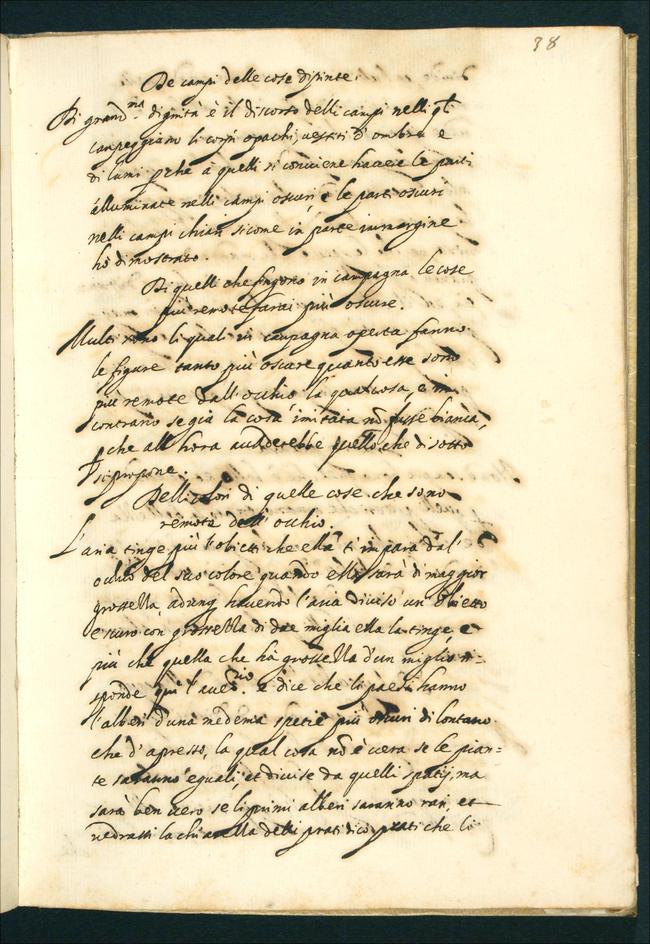 38
De campi delle cose dipinte.
Di grand.ma dignità è il discorso delli campi nelli q.li
campeggiano li corpi opachi, vestiti d'ombra e
di lumi perche à quelli si conviene havere le parti
alluminate nelli campi oscuri e le parti oscuri
nelli campi chiari sicome in parte immargine
hò dimostrato.
Di quelli che fingono in campagna le cose
più remote farai più oscure.
Multi sono li quali in campagna operta fanno
le figure tanto più oscure quanto esse sono
più remote dall'occhio la qual cosa è in
contrario se già la cosa imitata nō fusse bianca,
perche all'hora accaderebbe quello che di sotto
si propone.
Delli colori di quelle cose che sono
remote dell'occhio.
L'aria tinge più l'obietti che ella ti impara dal
occhio del suo colore quando ella sarà di maggior
grossezza, adunq havendo l'aria diviso un obietto
escuro con grossezza di due miglia ella la tinge
più che quella che hà grossezza d'un miglio ri=
sponde quì l'aver.rio e dice che li paesi hanno
l'alberi d'una medema spetie più oscuri di lontano
che d'apresso, la qual cosa nō è vera se le pian=
te saranno eguali, et divise da quelli spatij, ma
sarà ben vero se li primi alberi saranno rari, et
vedrassi la chiarezza delli prati che li